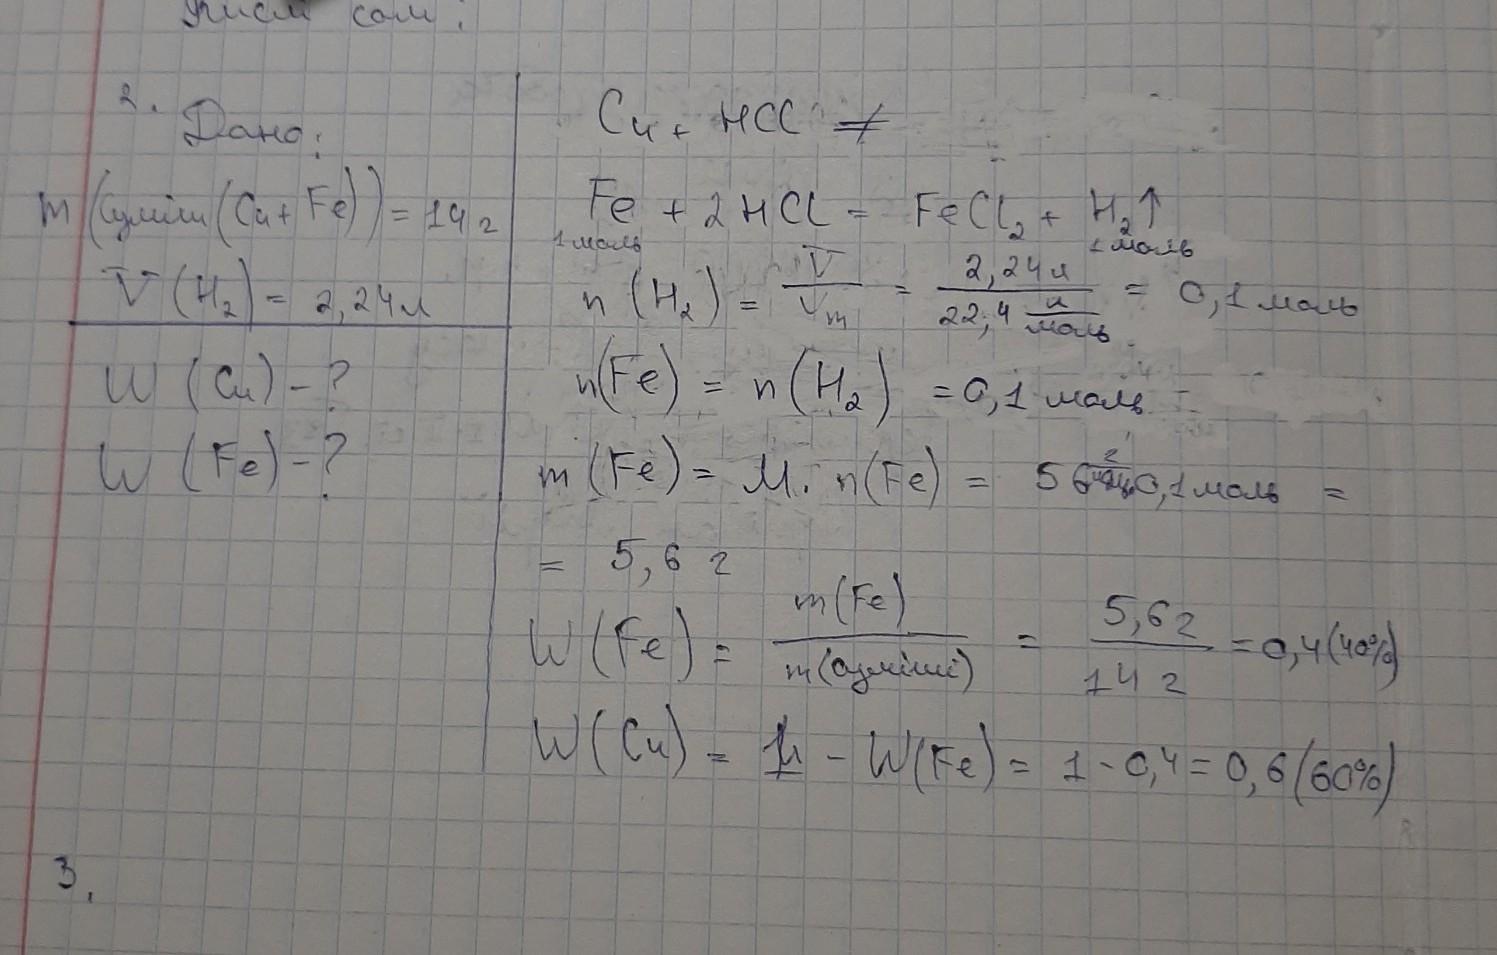 Кисл сол:
2.
Дано:
m (суміші (Cu + Fe)) = 14 г
V (H₂) = 2,24 л
W (Cu) - ?
W (Fe) - ?
Cu + HCl ≠
Fe + 2HCl = FeCl₂ + H₂↑
1 моль 1 моль
n (H₂) = V / Vm = 2,24 л / 22,4 л/моль = 0,1 моль
n (Fe) = n (H₂) = 0,1 моль
m (Fe) = M · n (Fe) = 56 г/моль · 0,1 моль =
= 5,6 г
W (Fe) = m (Fe) / m (суміші) = 5,6 г / 14 г = 0,4 (40%)
W (Cu) = 1 - W (Fe) = 1 - 0,4 = 0,6 (60%)
3.